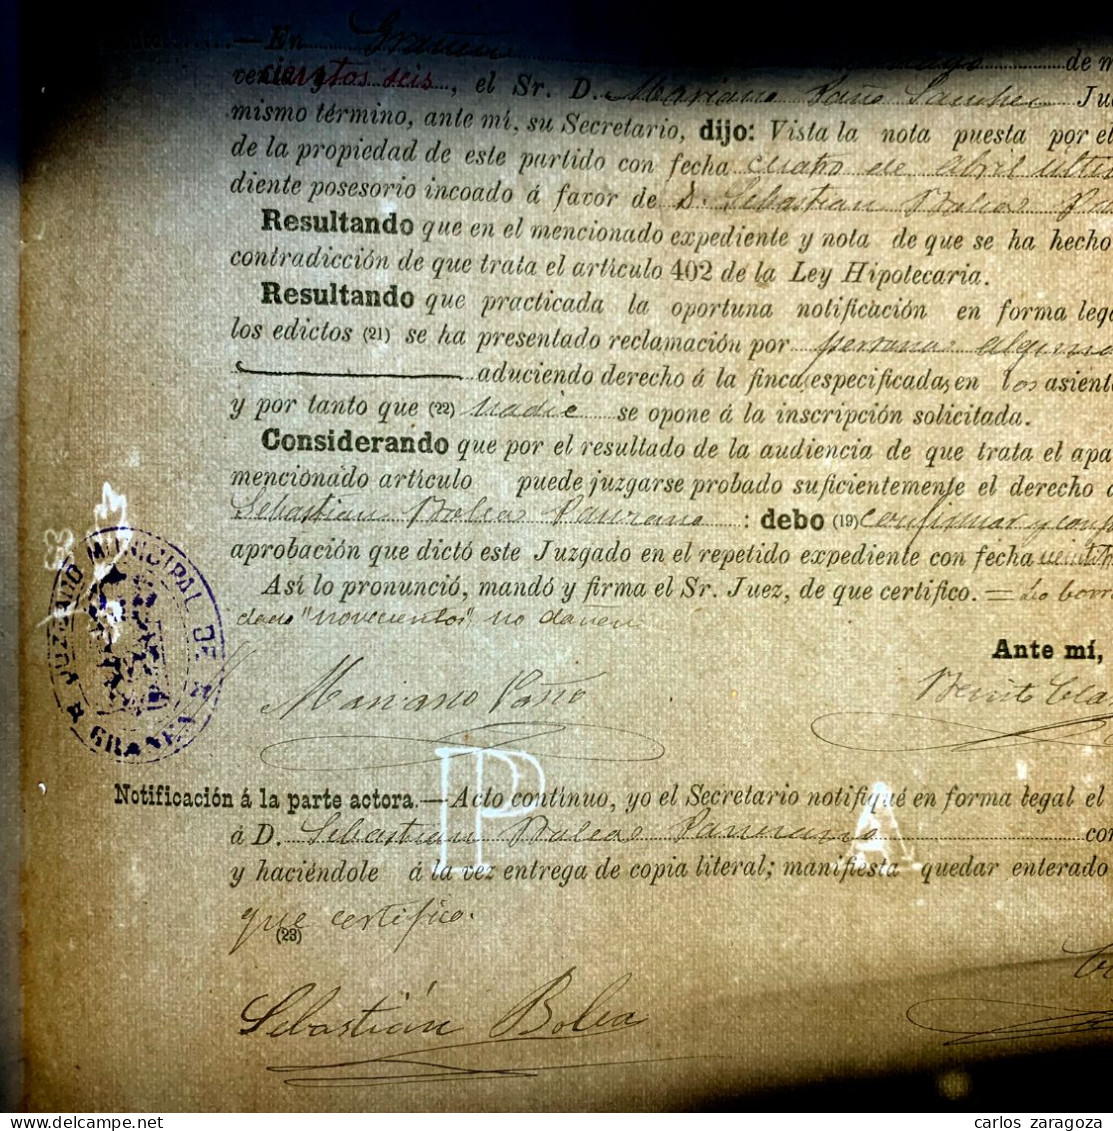 — En Grañén mayo de m
cientos seis, el Sr. D. Mariano Paño Sanchez Jue
mismo término, ante mí, su Secretario, dijo: Vista la nota puesta por el
de la propiedad de este partido con fecha cuatro de abril ulti
diente posesorio incoado á favor de D. Sebastian Boleas
Resultando que en el mencionado expediente y nota de que se ha hecho
contradicción de que trata el artículo 402 de la Ley Hipotecaria.
Resultando que practicada la oportuna notificación en forma lega
los edictos (21) se ha presentado reclamación por persona alguna
aduciendo derecho á la finca especificadas en los asient
y por tanto que (22) nadie se opone á la inscripción solicitada.
Considerando que por el resultado de la audiencia de que trata el apa
mencionado artículo puede juzgarse probado suficientemente el derecho d
Sebastian Boleas Panzano : debo (19) confirmar y conf
aprobación que dictó este Juzgado en el repetido expediente con fecha
Así lo pronunció, mandó y firma el Sr. Juez, de que certifico. = Lo borr
dado "novecientos" no dañen
Ante mí,
Mariano Paño
Benito Cla
JUZGADO MUNICIPAL DE GRAÑEN
PP A
Notificación á la parte actora.—Acto contínuo, yo el Secretario notifiqué en forma legal el
á D. Sebastian Boleas Panzano con
y haciéndole á la vez entrega de copia literal; manifiesta quedar enterado
que certifico.
(23)
Sebastián Bolea
carlos zaragoza